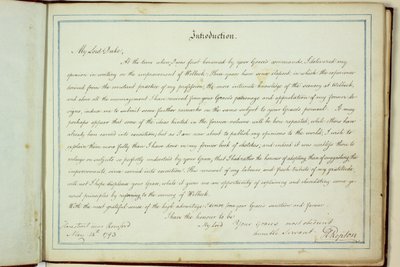 Introduction.
My Lord Duke,
At the time when I was first honoured by your Grace's commands I delivered my
opinion in writing on the improvement of Welbeck: Three years have now elapsed in which the experience
derived from the constant practice of my profession, the more intimate knowledge of the scenery at Welbeck,
and above all the encouragement I have received from your Grace's patronage and approbation of my former de-
signs, induce me to submit some further remarks on the same subject to your Grace's perusal. It may
perhaps appear that some of the ideas hinted in the former volume will be here repeated, while others have
already been carried into execution; but as I am now about to publish my opinions to the world, I wish to
explain them more fully than I have done in my former book of sketches, and indeed it was needless then to
enlarge on subjects so perfectly understood by your Grace, that I had rather the honour of adopting than of suggesting the
improvements, since carried into execution. This renewal of my labours and fresh tribute of my gratitude
will not I hope displease your Grace, while it gives me an opportunity of explaining and elucidating some ge-
neral principles by referring to the scenery of Welbeck.
With the most grateful sense of the high advantage I derive from your Grace's sanction and favour
I have the honour to be
My Lord Your Grace's most obedient
humble Servant
Hare Street near Romford
May 1793
H Repton